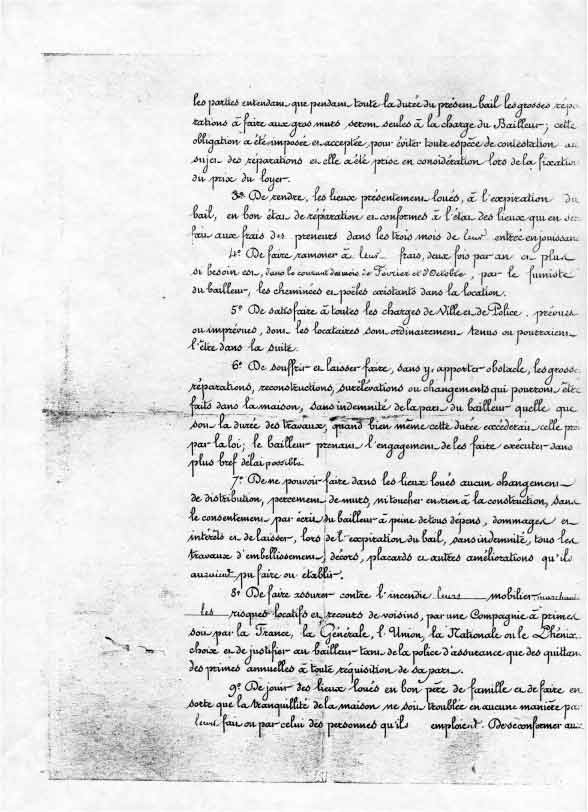 les parties entendant que pendant toute la durée du présent bail les grosses répa
rations à faire aux gros murs seront seules à la charge du Bailleur; cette
obligation a été imposée et acceptée pour éviter toute espèce de contestation au
sujet des réparations et elle a été prise en considération lors de la fixation
du prix du loyer.
3º De rendre, les lieux présentement loués, à l'expiration du
bail, en bon état de réparation et conformes à l'état des lieux qui en sera
fait aux frais des preneurs dans les trois mois de leur entrée en jouissance
4º De faire ramoner à leur frais, deux fois par an et plus
si besoin est, dans le courant des mois de Février et d'Octobre, par le fumiste
du bailleur, les cheminées et poêles existants dans la location.
5º De satisfaire à toutes les charges de Ville et de Police, prévues
ou imprévues, dont les locataires sont ordinairement tenus ou pourraient
l'être dans la suite.
6º De souffrir et laisser faire, sans y apporter obstacle, les grosses
réparations, reconstructions, surélévations ou changements qui pourront être
faits dans la maison, sans indemnité de la part du bailleur quelle que
soit la durée des travaux, quand bien même cette durée excéderait celle pré
par la loi; le bailleur prenant l'engagement de les faire exécuter dans
plus bref délai possible.
7º De ne pouvoir faire dans les lieux loués aucun changement
de distribution, percement de murs, ni toucher en rien à la construction, sans
le consentement par écrit du bailleur à peine de tous dépens, dommages et
intérêts et de laisser, lors de l'expiration du bail, sans indemnité, tous les
travaux d'embellissement, décors, placards et autres améliorations qu'ils
auraient pu faire ou établir.
8º De faire assurer contre l'incendie leurs mobilier, marchand
les risques locatifs et recours de voisins, par une Compagnie à primes
soit par la France, la Générale, l'Union, la Nationale ou le Phénix
choix et de justifier au bailleur tant de la police d'assurance que des quittan
des primes annuelles à toute réquisition de sa part.
9º De jouir des lieux loués en bon père de famille et de faire en
sorte que la tranquillité de la maison ne soit troublée en aucune manière par
leur fait ou par celui des personnes qu'ils emploient. De se conformer au